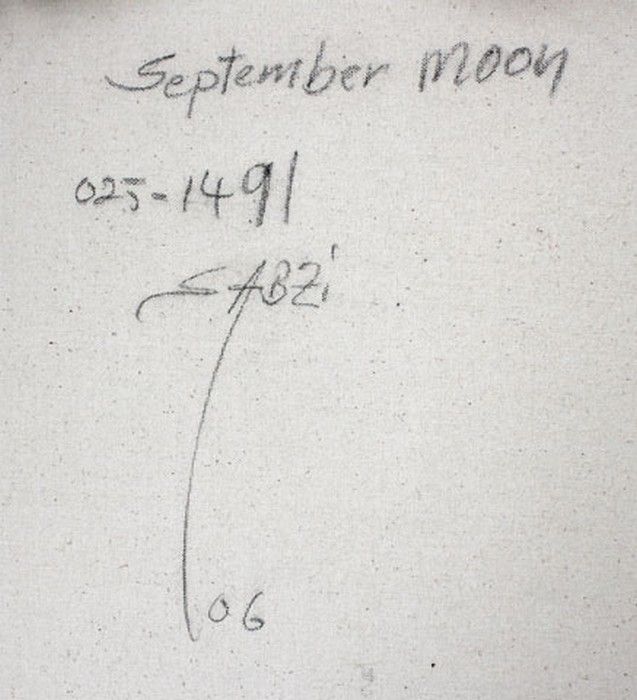 September Moon
025-1491
SABZi
06